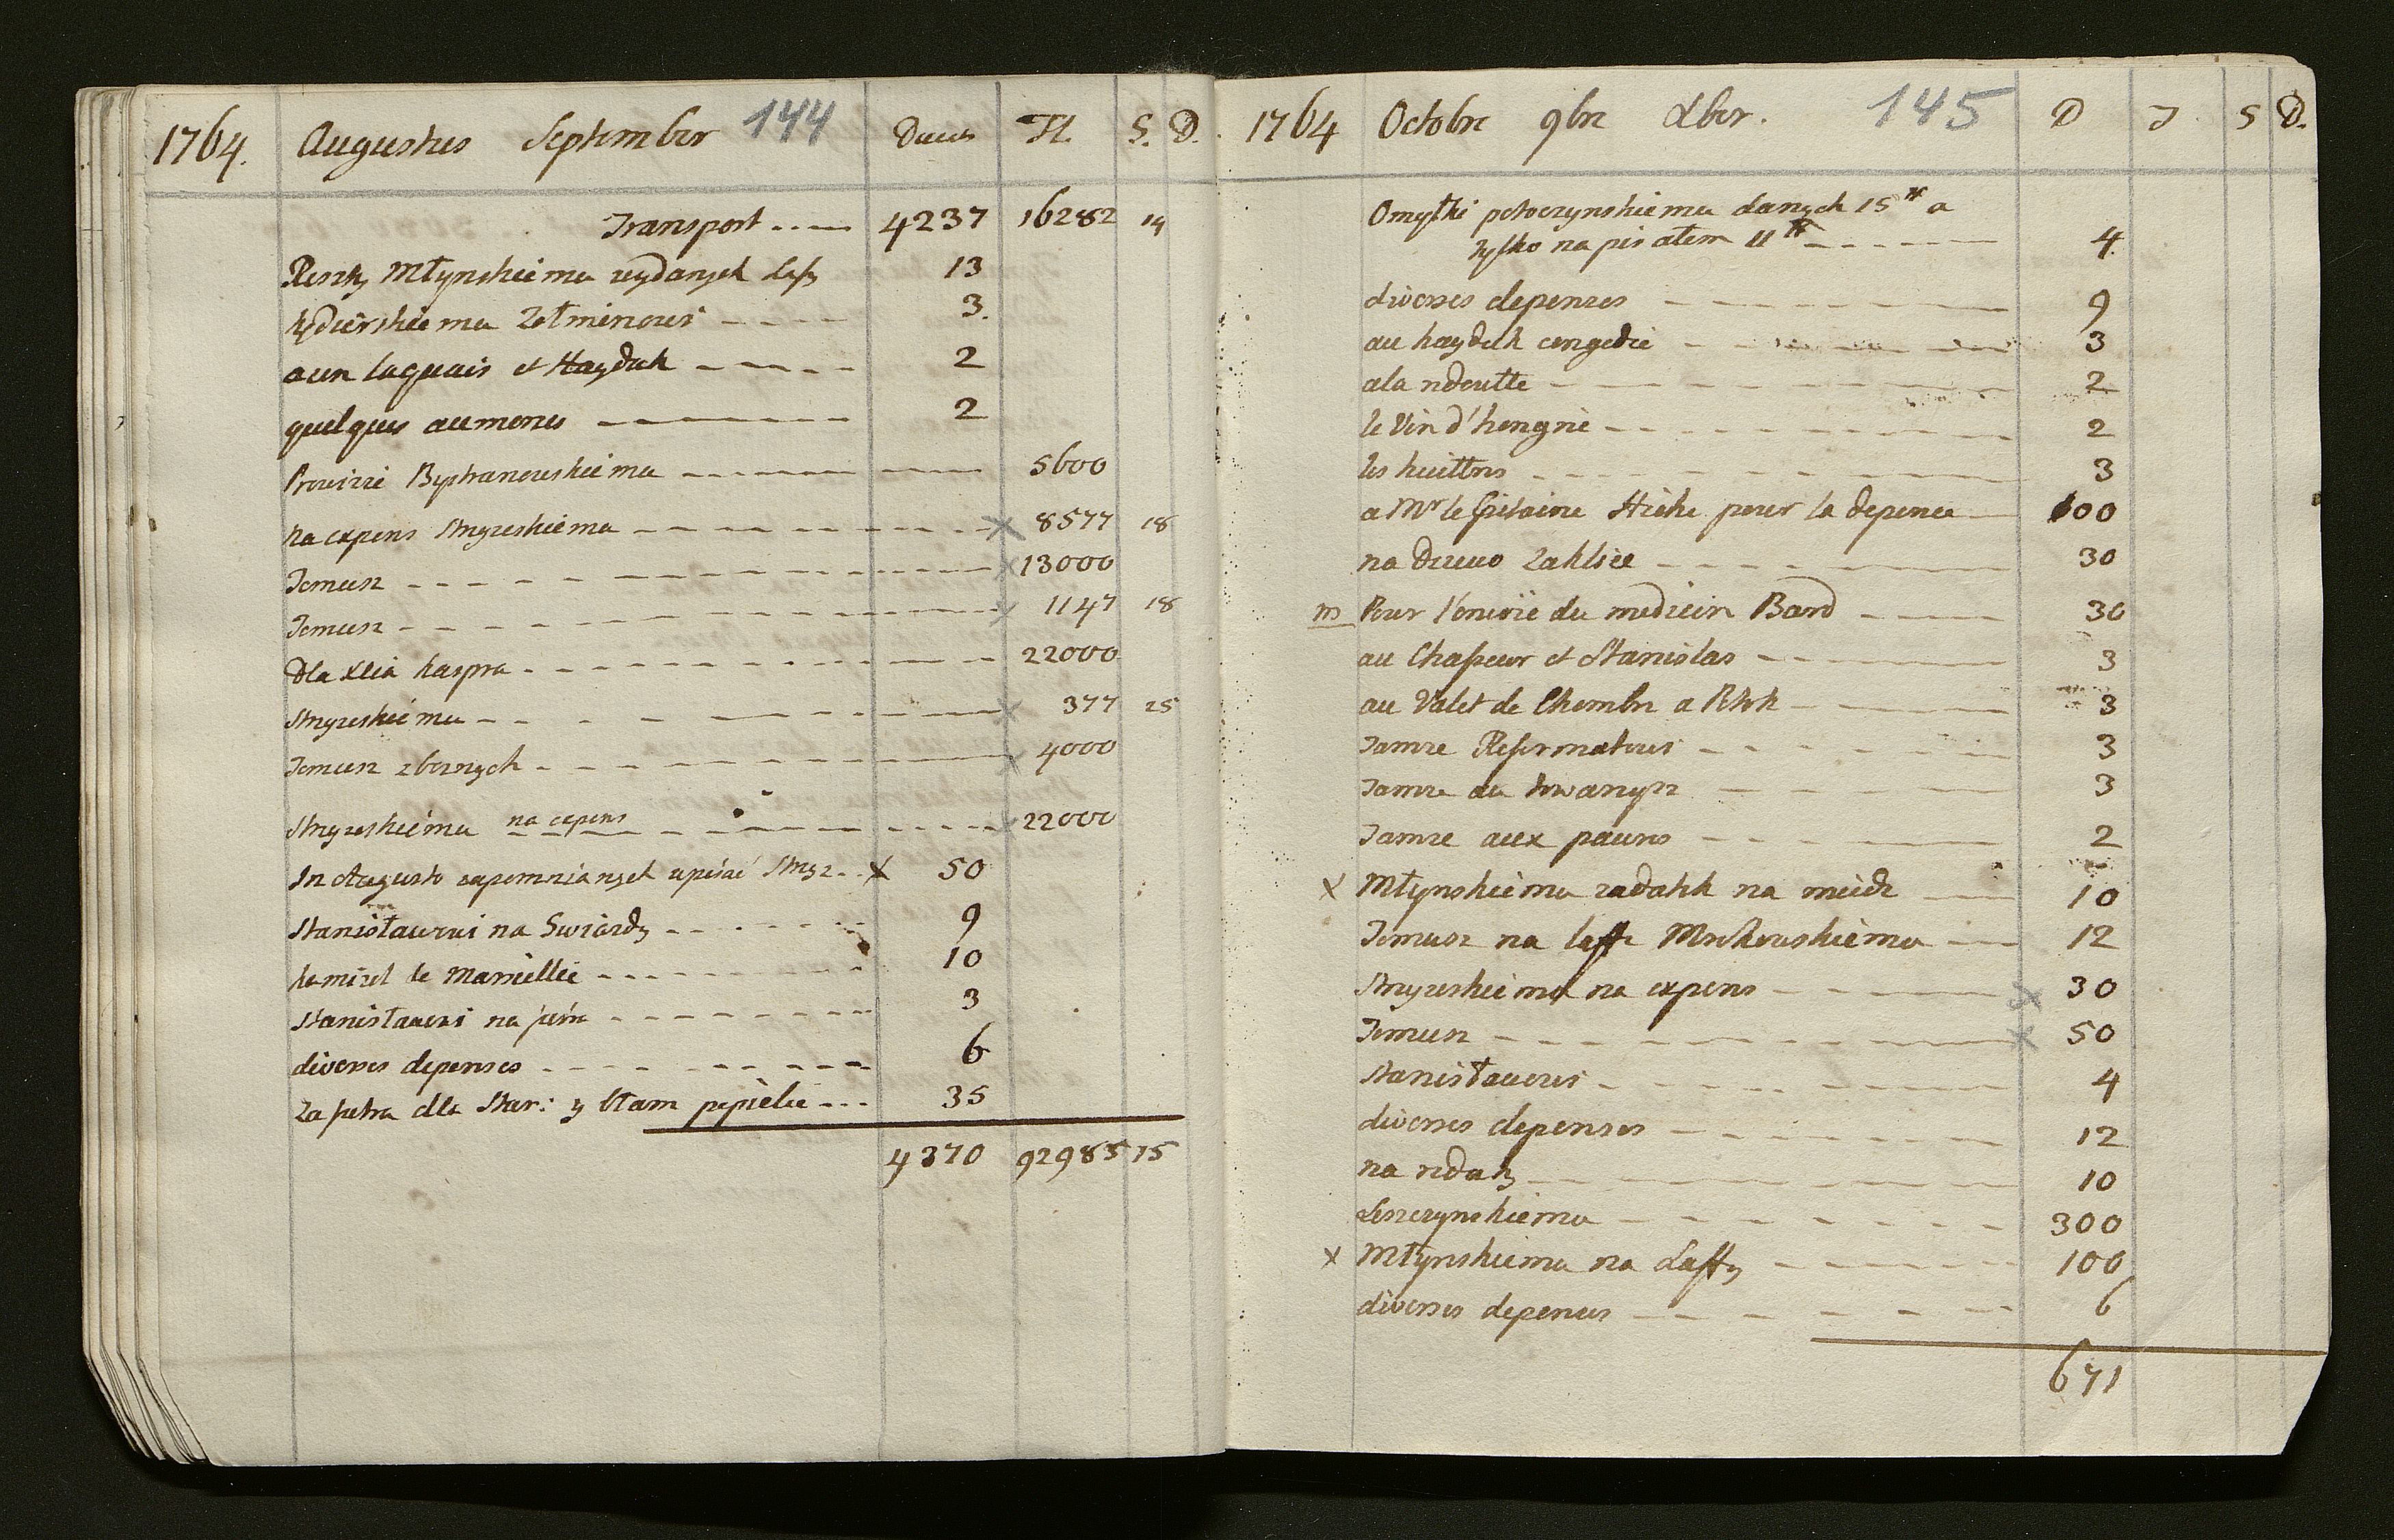 1764. Augustus September 144 Duccts Fl. S. D.
Transport ..... 4237 16282 14
Reszty Młynskiemu wydanych 13
Zołmierowi 3.
a un laquais et Hayduk 2
quelques aumones 2
Prowizii Bystranowskiemu 5600
na expens Stryzeskiemu x 8577 18
Temusz x 13000
Temusz x 1147 18
Dla Xcia kaspra 22000
Stryzeskiemu x 377 25
Temusz zbornych x 4000
Stryzeskiemu na expens x 22000
In Augusto zapomnianych upisać Stryz.. x 50
Stanisławowi na 9
le Marcellie 10
Stanisławowi 3
diverses depenses 6
Za futra dla Star: y błam popielic 35
4370 92985 15
1764 Octobre 9bre Xber. 145 D T S D.
Omyłki potoczynskiemu danych 15# a
tylko na pisałem 11# 4
diverses depenses 9
au hayduk congedié 3
a la rdoutte 2
le Vin d'hongrie 2
les huittres 3
a Mr le Capitaine pour la depence 100
na Drewo Zaklice 30
m Pour l'envoïé du medicin Bard 30
au Chasseur et Stanislas 3
au Valet de Chambre a 3
Tamze Reformatowi 3
Tamze au 3
Tamze aux pauvres 2
x Młynskiemu zadatk na miedz 10
Temusz na laffe 12
Stryzeskiemu na expens x 30
Temusz x 50
Stanisławowi 4
diverses depenses 12
na rduty 10
Leszczynskiemu 300
x Młynskiemu na Laffy 100
diverses depences 6
671